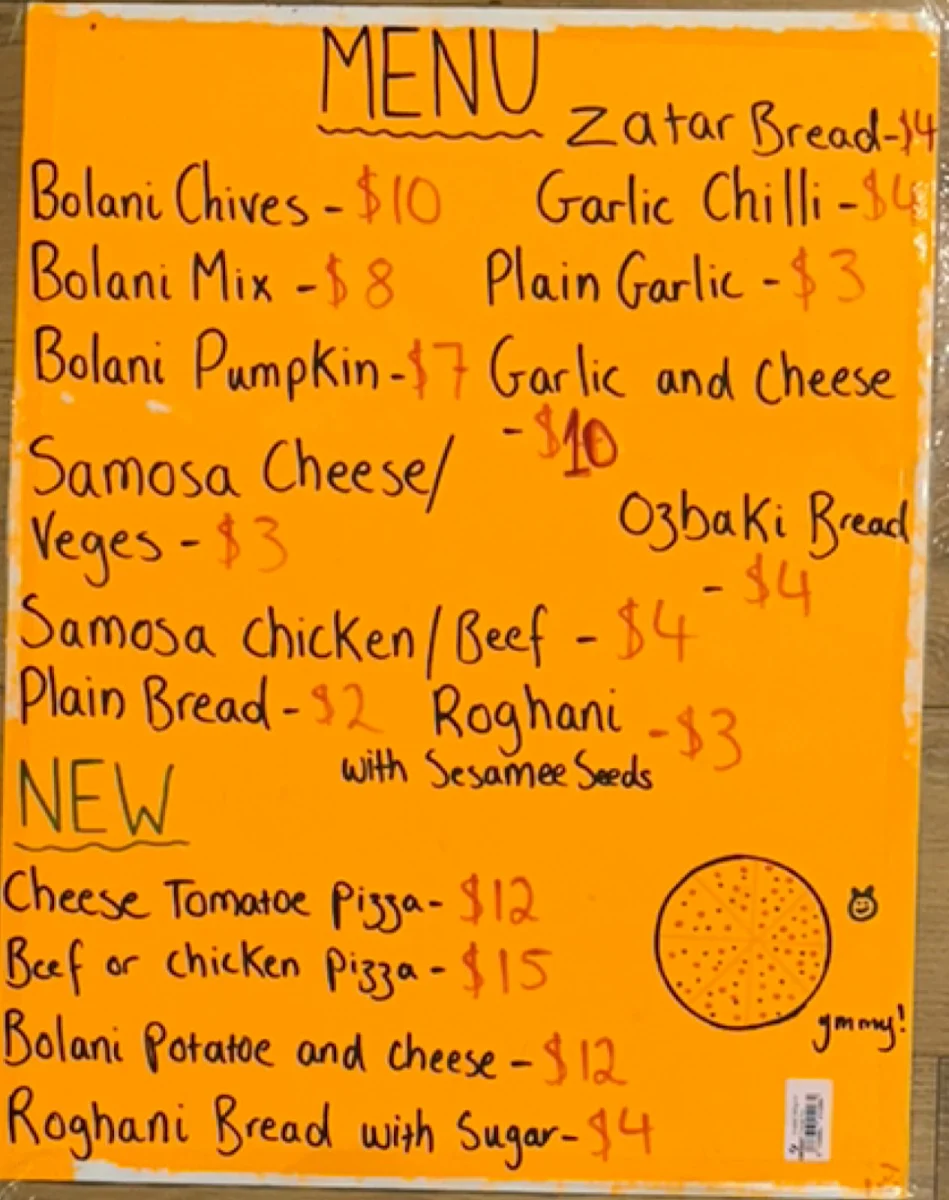 MENU
Zatar Bread-$4
Bolani Chives - $10
Garlic Chilli - $4
Bolani Mix - $8
Plain Garlic - $3
Bolani Pumpkin - $7
Garlic and Cheese
- $10
Samosa Cheese/
Veges - $3
Ozbaki Bread
- $4
Samosa chicken/Beef - $4
Plain Bread - $2
Roghani - $3
with Sesamee Seeds
NEW
Cheese Tomatoe Pizza - $12
Beef or chicken Pizza - $15
Bolani Potatoe and cheese - $12
Roghani Bread with Sugar - $4
ymmy!